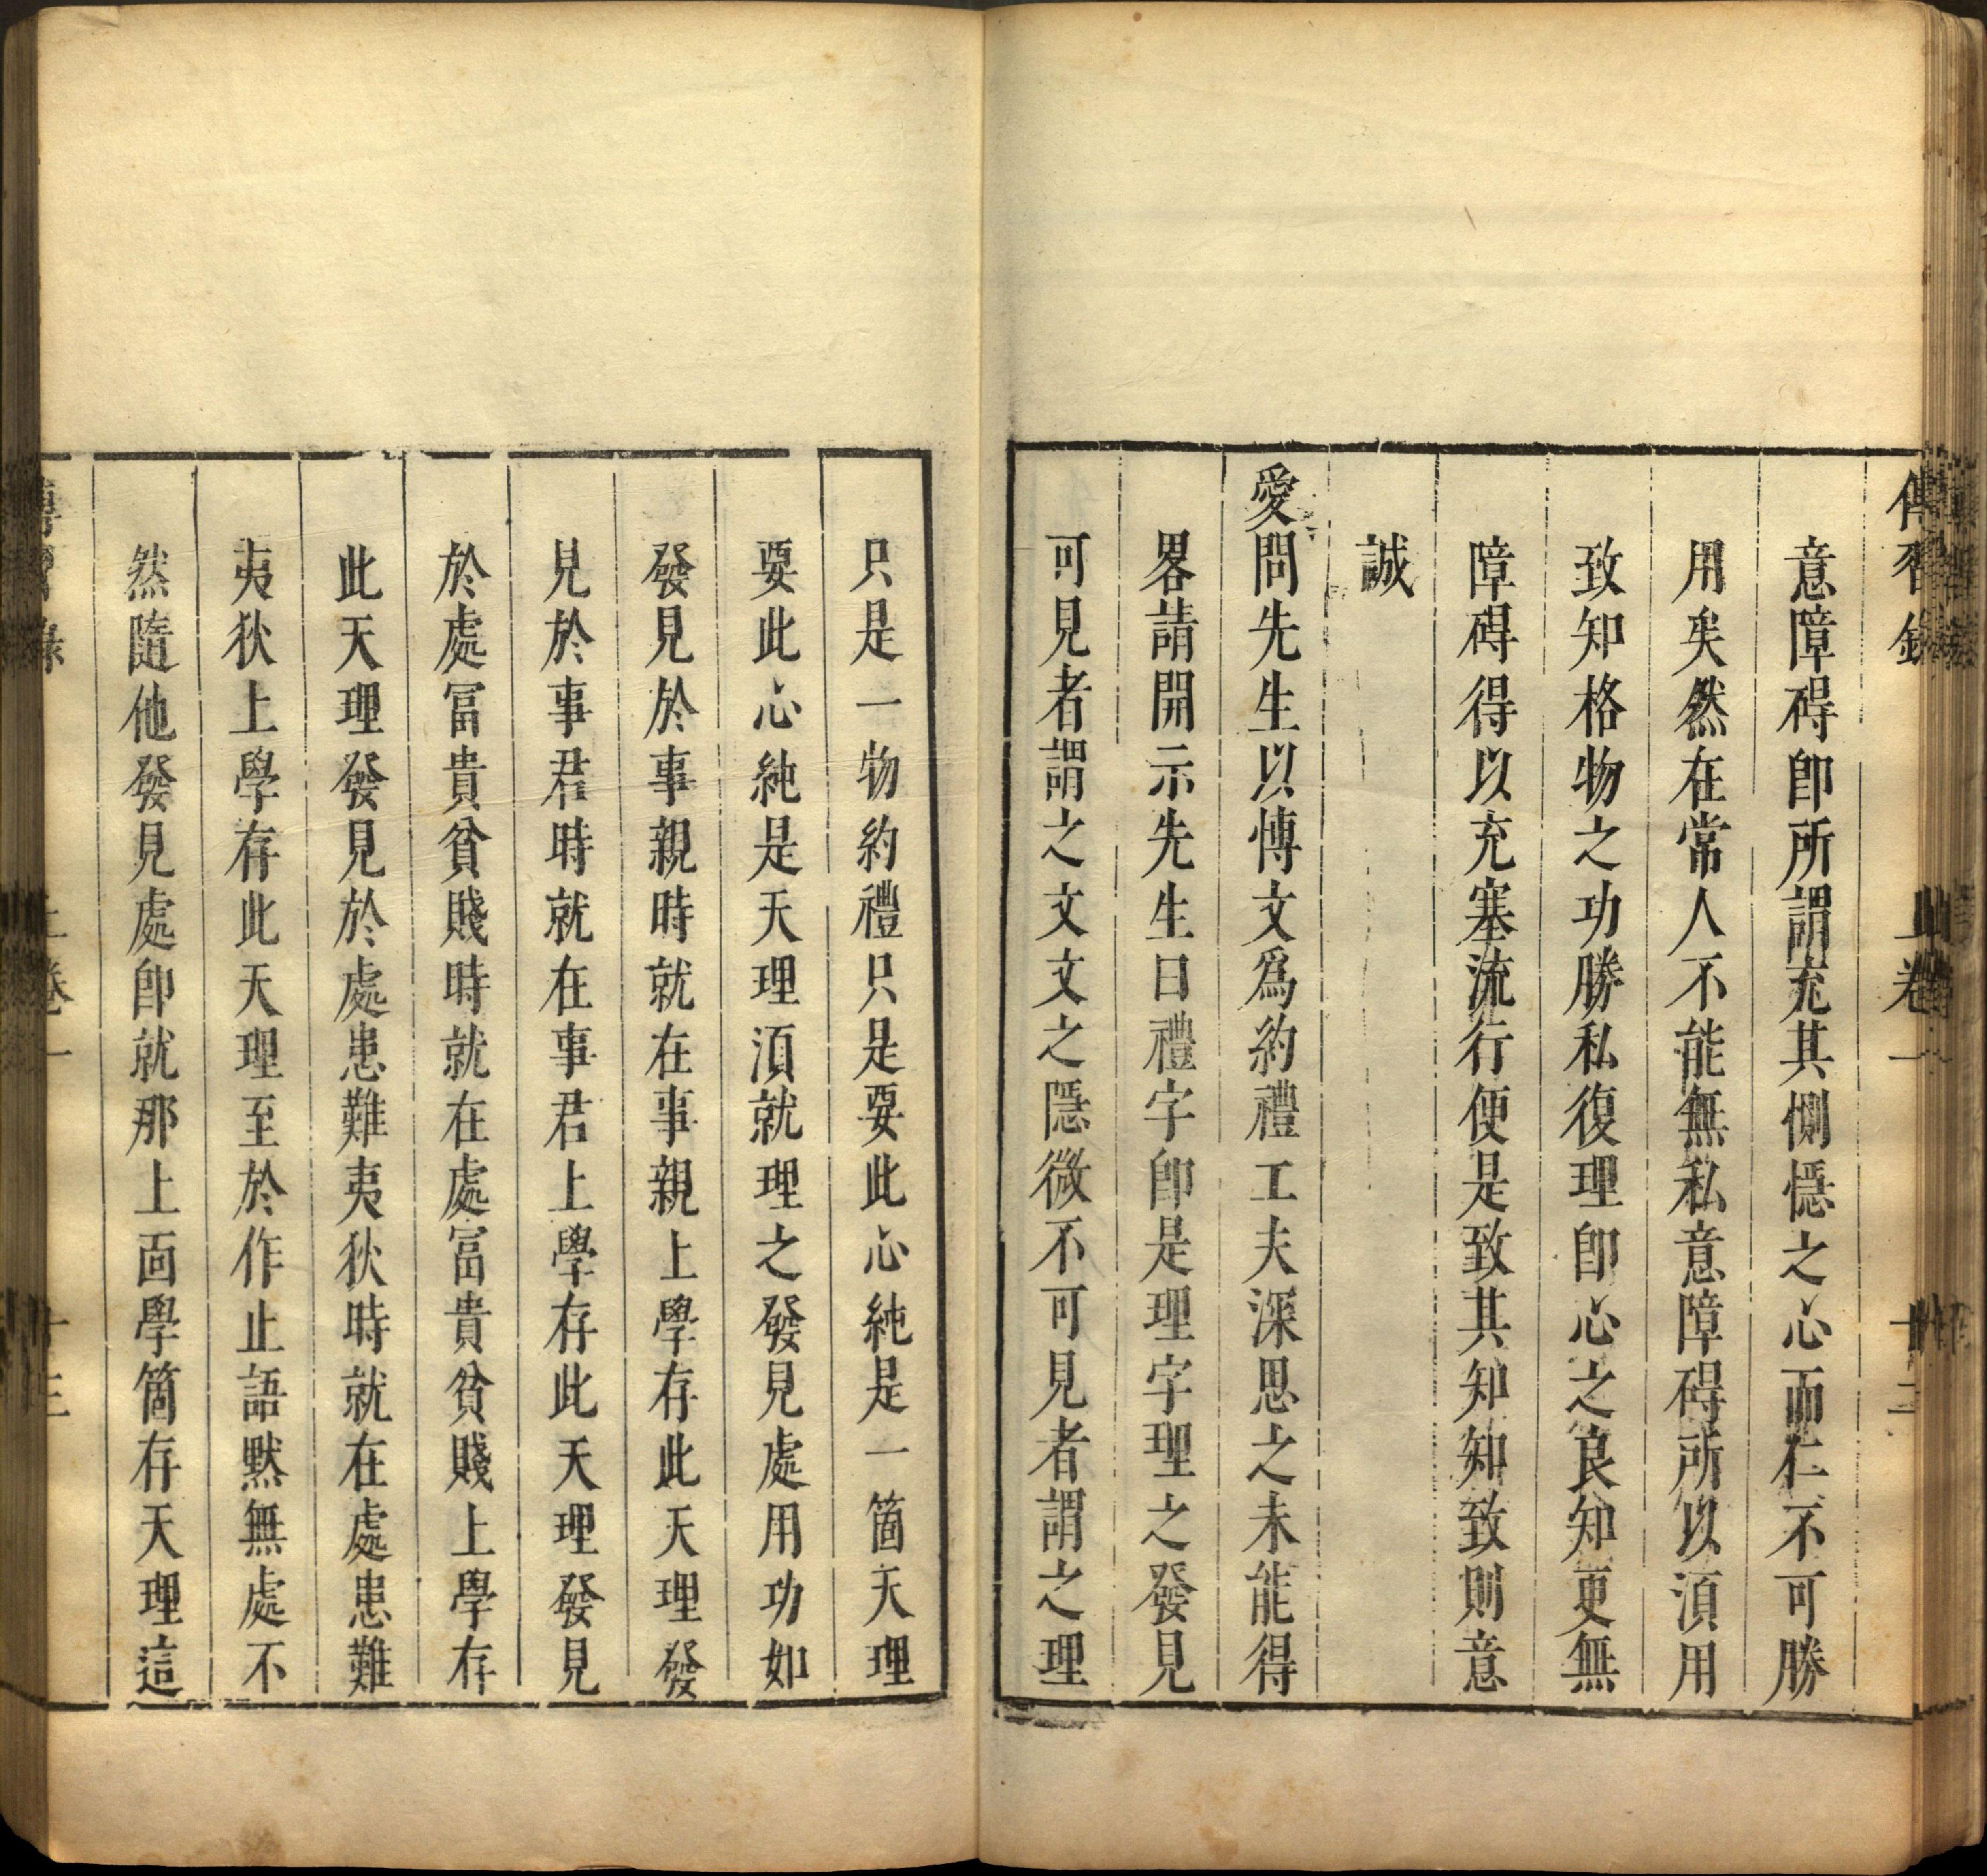 傳習錄 上卷一 十二
意障碍卽所謂充其惻隱之心而仁不可勝
用矣然在常人不能無私意障碍所以湏用
致知格物之功勝私復理卽心之良知更無
障碍得以充塞流行便是致其知知致則意
誠
愛問先生以博文爲約禮工夫深思之未能得
畧請開示先生曰禮字卽是理字理之發見
可見者謂之文文之隱微不可見者謂之理
只是一物約禮只是要此心純是一箇天理
要此心純是天理湏就理之發見處用功如
發見於事親時就在事親上學存此天理發
見於事君時就在事君上學存此天理發見
於處冨貴貧賤時就在處冨貴貧賤上學存
此天理發見於處患難夷狄時就在處患難
夷狄上學存此天理至於作止語黙無處不
然隨他發見處卽就那上面學箇存天理這
傳習錄 上卷一 十三